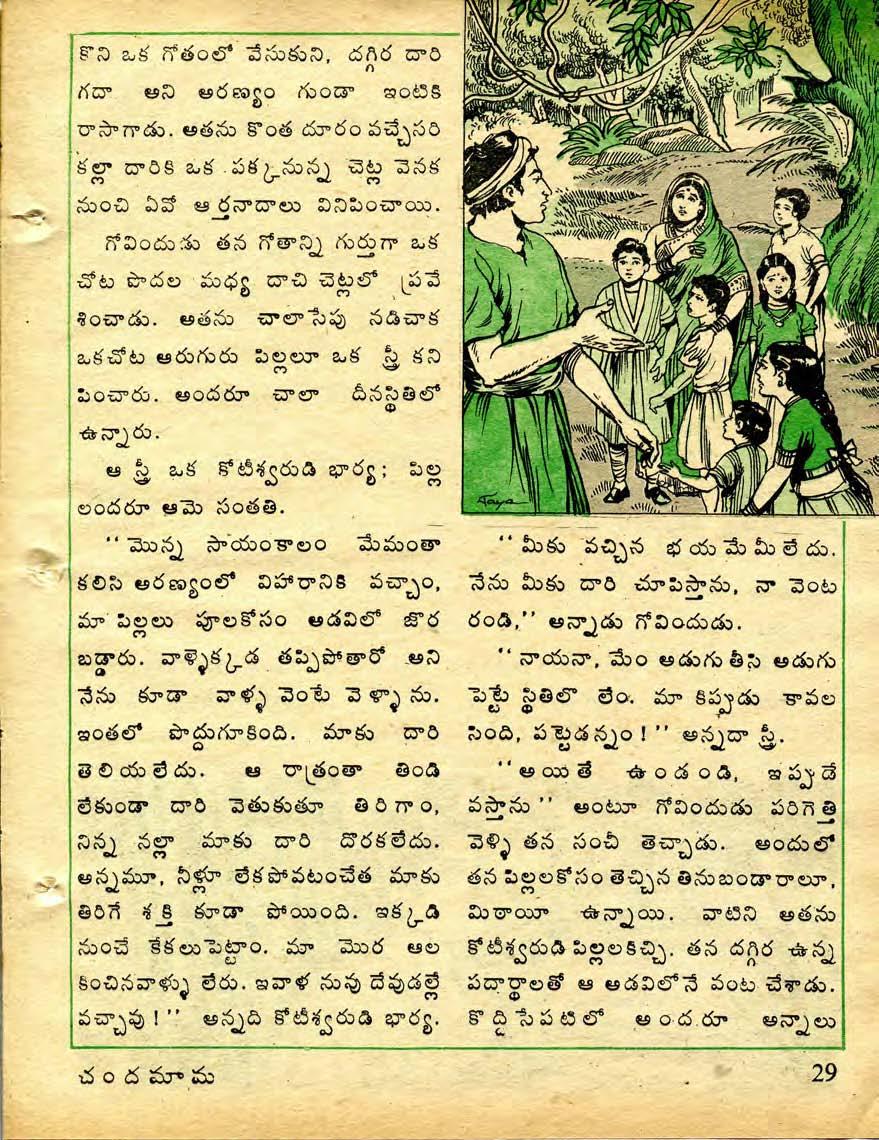 కొని ఒక గోతంలో వేసుకుని, దగ్గిర దారి
గదా అని అరణ్యం గుండా ఇంటికి
రాసాగాడు. అతను కొంత దూరం వచ్చేసరి
కల్లా దారికి ఒక పక్కనున్న చెట్ల వెనక
నుంచి ఏవో ఆర్తనాదాలు వినిపించాయి.
గోవిందుడు తన గోతాన్ని గుర్తుగా ఒక
చోట పొదల మధ్య దాచి చెట్లలో ప్రవే
శించాడు. అతను చాలాసేపు నడిచాక
ఒకచోట ఆరుగురు పిల్లలూ ఒక స్త్రీ కని
పించారు. అందరూ చాలా దీనస్థితిలో
ఉన్నారు.
ఆ స్త్రీ ఒక కోటీశ్వరుడి భార్య; పిల్ల
లందరూ ఆమె సంతతి.
“మొన్న సాయంకాలం మేమంతా
కలిసి అరణ్యంలో విహారానికి వచ్చాం,
మా పిల్లలు పూలకోసం అడవిలో జొర
బడ్డారు. వాళ్ళెక్కడ తప్పిపోతారో అని
నేను కూడా వాళ్ళ వెంటే వెళ్ళాను.
ఇంతలో పొద్దుగూకింది. మాకు దారి
తెలియలేదు. ఆ రాత్రంతా తిండి
లేకుండా దారి వెతుకుతూ తిరిగాం,
నిన్న నల్లా మాకు దారి దొరకలేదు.
అన్నమూ, నీళ్లూ లేకపోవటంచేత మాకు
తిరిగే శక్తి కూడా పోయింది. ఇక్కడి
నుంచే కేకలుపెట్టాం. మా మొర ఆల
కించినవాళ్ళు లేరు. ఇవాళ నువు దేవుడల్లే
వచ్చావు!” అన్నది కోటీశ్వరుడి భార్య.
“మీకు వచ్చిన భయమేమీ లేదు.
నేను మీకు దారి చూపిస్తాను, నా వెంట
రండి,” అన్నాడు గోవిందుడు.
“నాయనా, మేం అడుగుతీసి అడుగు
పెట్టే స్థితిలో లేం. మా కిప్పుడు కావల
సింది, పట్టెడన్నం!” అన్నదా స్త్రీ.
“అయితే ఉండండి, ఇప్పుడే
వస్తాను” అంటూ గోవిందుడు పరిగెత్తి
వెళ్ళి తన సంచీ తెచ్చాడు. అందులో
తన పిల్లలకోసం తెచ్చిన తినుబండారాలూ,
మిఠాయీ ఉన్నాయి. వాటిని అతను
కోటీశ్వరుడి పిల్లలకిచ్చి. తన దగ్గిర ఉన్న
పదార్థాలతో ఆ అడవిలోనే వంట చేశాడు.
కొద్దిసేపటిలో అందరూ అన్నాలు
చందమామ
29